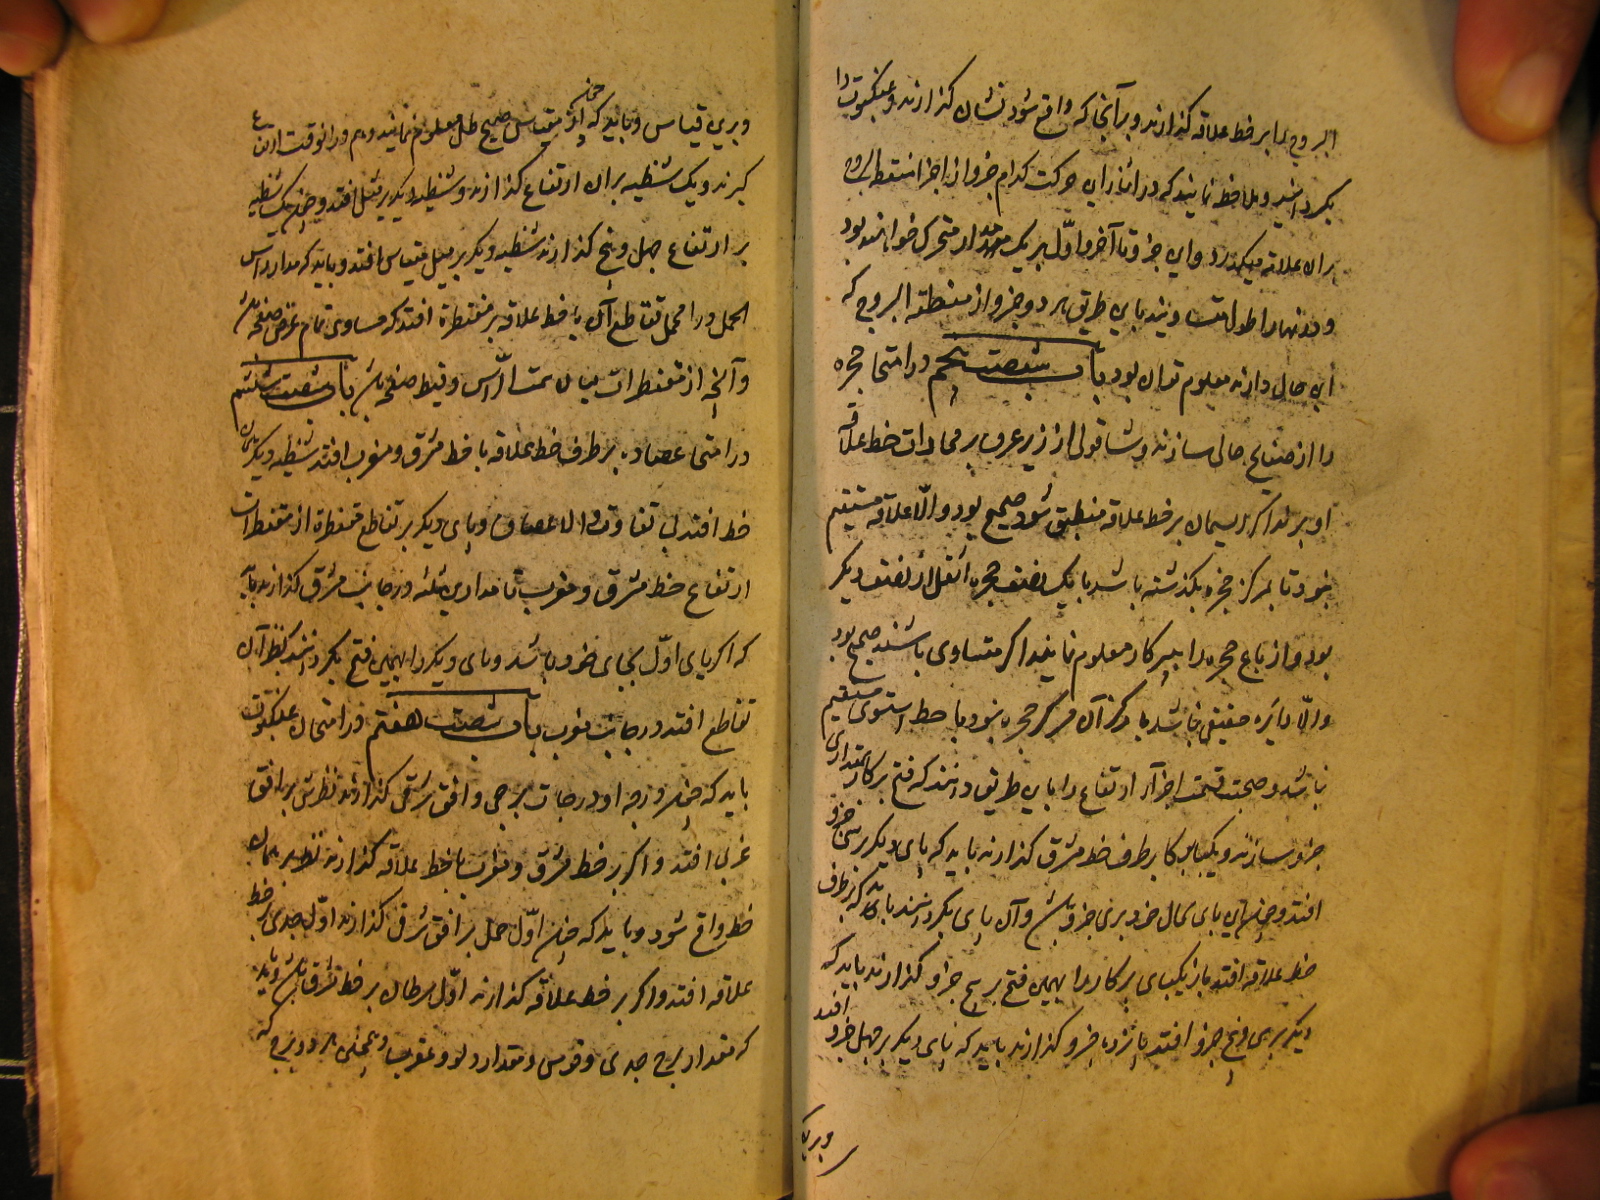 البروج را بر خط علاقه گذارند و بر آنجا که واقع شود نشان گذارند و عنکبوت را
بگردانند و ملاحظه نمایند که در اثنا این حرکت کدام جزو از اجزا منتقطة البروج
بران علاقه میگذرد و این جزو تا آخر و اوّل بر یک مدار متحرک خواهند بود
و در نهار اطول متساویند باین طریق هر دو جزو از منطقه البروج که
این حال دارند معلوم توان بود باب شصت پنجم در امتحان حجره
را از صفایح خالی سازند و شاقولی از زیر عروه بر محاذات خط علاقه
او برند اگر ریسمان بر خط علاقه منطبق شود صحیح بود و الّا علاقه مستقیم
نبود تا بمرکز حجره بگذشته باشد یا یک نصف حجره اثقل از نصف دیگر
بود و ارباع حجره را بپرکار معلوم نمایند اگر متساوی باشند صحیح بود
و الّا دایره حقیقی نباشد یا مرکز آن مرکز حجره نبود یا خط استوی مستقیم
نباشد و صحت قسمت اجزاء ارتفاع را باین طریق دانند که فتح پرکار بمقداری
جزو سازند و یکپای پرکار بر طرف خط مشرق گذارند باید که پای دیگر بر سی جزو
افتد و چنان این پای بحال خود بر سی جزو باشد و آن پای بگردانند باید که بر طرف
خط علاقه افتد باز یکپای پرکار را بهمین فتح بر پنج جزو گذارند باید که
دیگر بر سی و پنج جزو افتد یا نزده جزو گذارند باید که پای دیگر بر چهل جزو افتد
و برین
و برین قیاس و باید که چنان از مقیاس صحیح ظل معلوم نمایند و هم در انوقت ارتفاع
گیرند و یک شظیه بران ارتفاع گذارند و شظیه دیگر بر مثل افتد و چنان یک شظیه
بر ارتفاع چهل و پنج گذارند شظیه دیگر بر مثل مقیاس افتد و باید که مدار راس
الحمل را محل تقاطع آن با خط علاقه بر مقنطرة افتد که مساوی تمام عرض صفحه باشد
و آنچه از مقنطرات میان سمت الرّاس و قطب صفحه باشد باب شصت ششم
در امتحان عضاده بر طرف خط علاقه یا خط مشرق و مغرب افتد شظیه دیگر بران
خط افتد بی تفاوت و الا عضاده و پای دیگر بر تقاطع مقنطرة از مقنطرات
ارتفاع خط مشرق و مغرب تا مدارین ثلثه در جانب مشرق گذارند باید
که اگر پای اوّل بجای خود باشد و پای دیگر را بهمین فتح بگردانند بنظر آن
تقاطع افتد در جانب مغرب باب شصت هفتم در امتحان عنکبوت
باید که چنان درجه او درجات برجی و افق شرقی گذارند نظیرش بر افق
غربی افتد و اگر بر خط مشرق و مغرب یا خط علاقه گذارند نظیر بر همان
خط واقع شود و باید که چنان اوّل حمل بر افق شرقی گذارند اوّل جدی بر خط
علاقه افتد و اگر بر خط علاقه گذارند اوّل سرطان بر خط مشرق باشد و باید
که مقدار برج جدی و قوس و مقدار دلو و عقرب و همچنین هر دو برج که